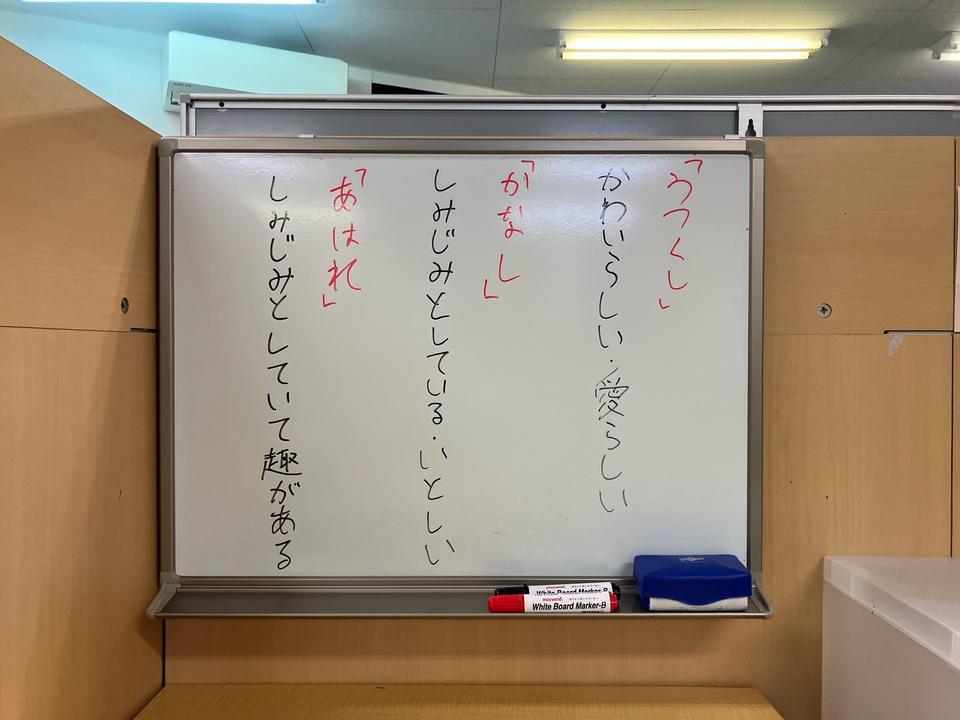 「うつくし」
かわいらしい・愛らしい
「かなし」
しみじみとしている・いとしい
「あはれ」
しみじみとしていて趣がある
White Board Marker-B
White Board Marker-B